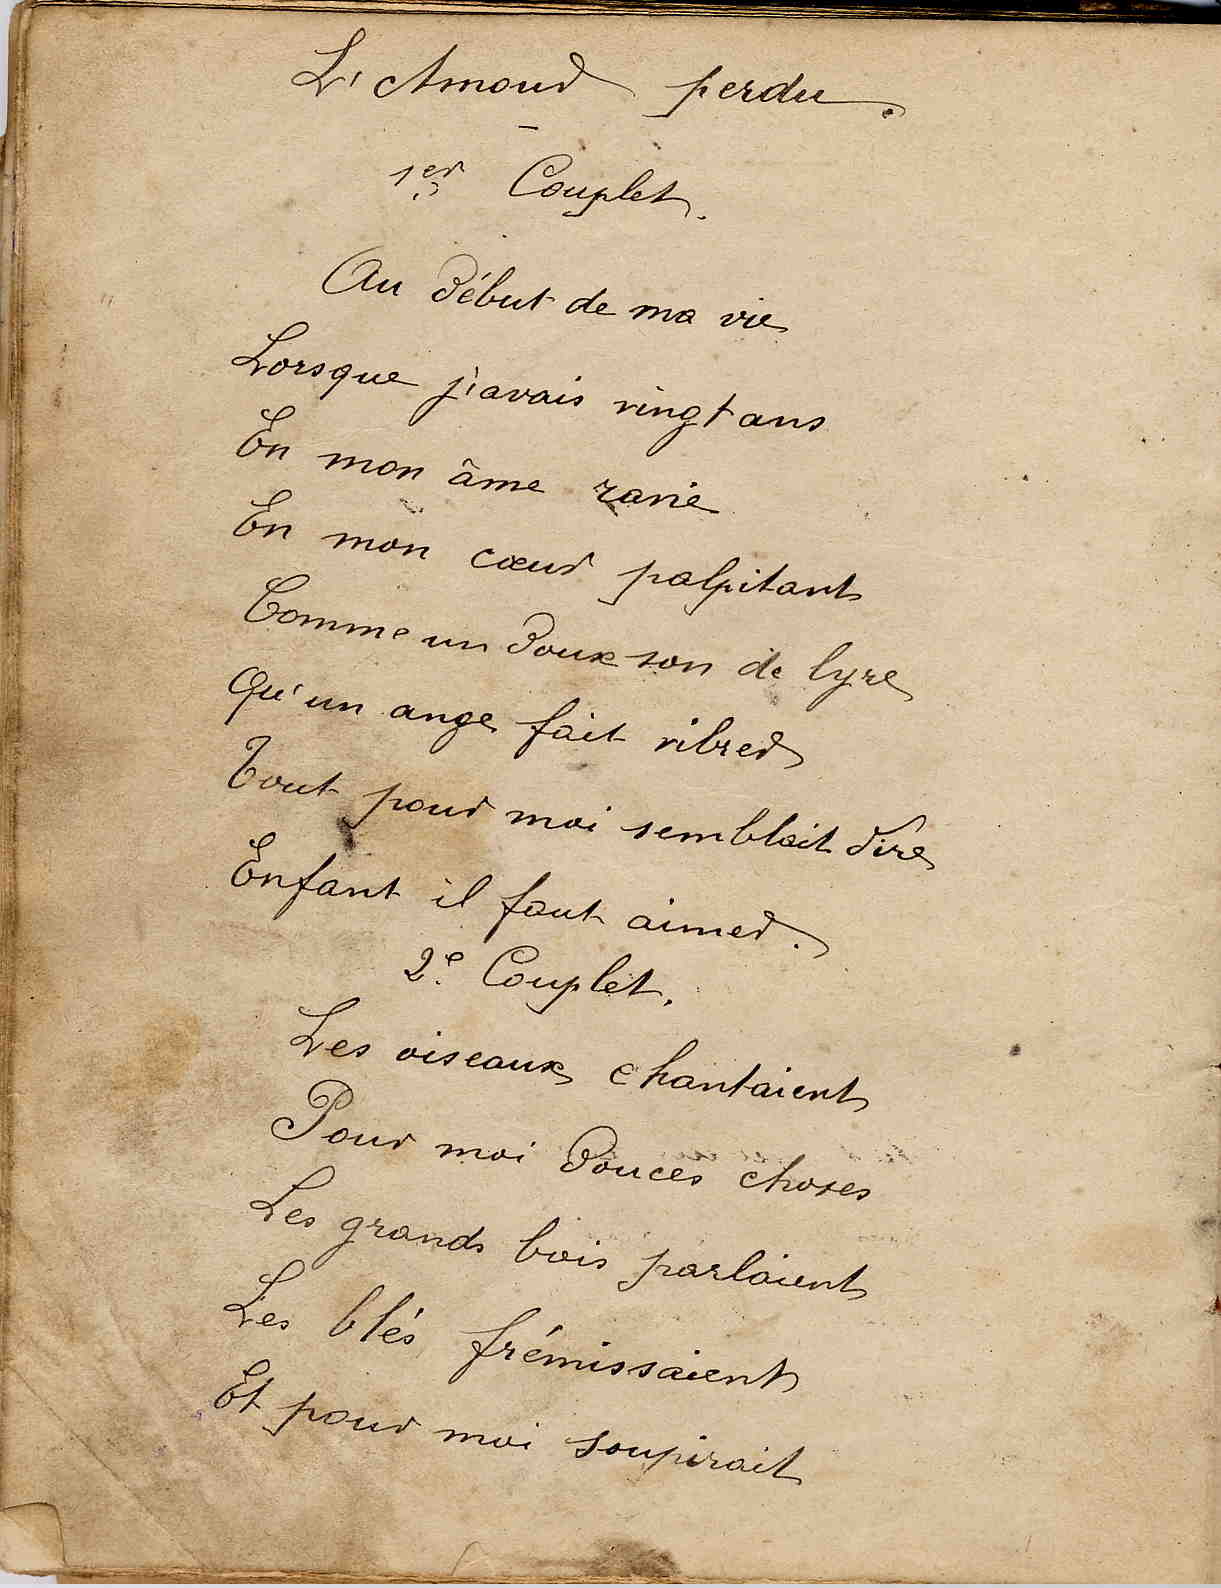 L'Amour perdu.
1er Couplet.
Au début de ma vie
Lorsque j'avais vingt ans
En mon âme ravie
En mon cœur palpitant
Comme un doux son de lyre
Qu'un ange fait vibrer
Tout pour moi semblait dire
Enfant il faut aimer.
2e Couplet.
Les oiseaux chantaient
Pour moi douces choses
Les grands bois parlaient
Les blés frémissaient
Et pour moi soupirait